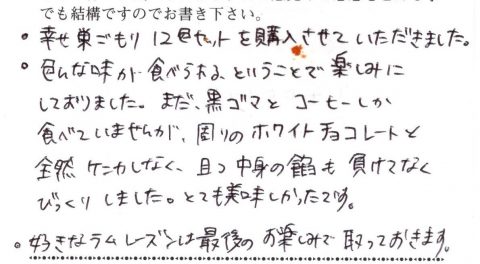 でも結構ですのでお書き下さい。
• 幸せ巣ごもり 12色セットを購入させていただきました。
• 色んな味が食べられる、ということで楽しみに
しておりました。まだ、黒ゴマとコーヒーしか
食べていませんが、周りのホワイトチョコレートと
全然ケンカしなく、且つ中身の餡も負けてなく
びっくりしました。とても美味しかったです。
• 好きなラムレーズンは最後のお楽しみで取っておきます。